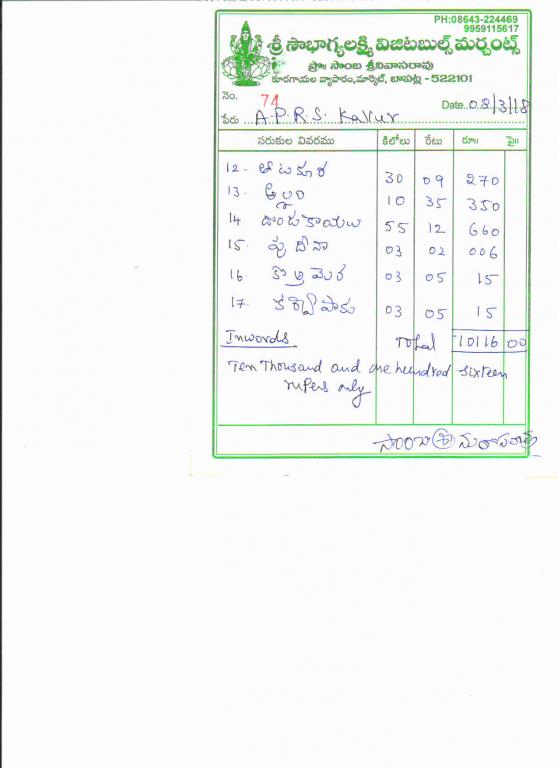 PH:08643-224469
9959115617
శ్రీ సౌభాగ్యలక్ష్మి విజిటబుల్స్ మర్చంట్స్
ప్రొ॥ సాంబ శ్రీనివాసరావు
కూరగాయల వ్యాపారం,మార్కెట్, బాపట్ల - 522101
నెం. 74 Date..08/3/18
పేరు ... A.P.R.S. Kavur
సరుకుల వివరము కిలోలు రేటు రూ॥ పై॥
12. తోటకూర 30 09 270
13. అల్లం 10 35 350
14 దొండకాయలు 55 12 660
15. పుదీనా 03 02 006
16 కొత్తిమెర 03 05 15
17. కర్వేపాకు 03 05 15
Inwords. Total 10116 00
Ten Thousand and one hundred sixteen
rupees only